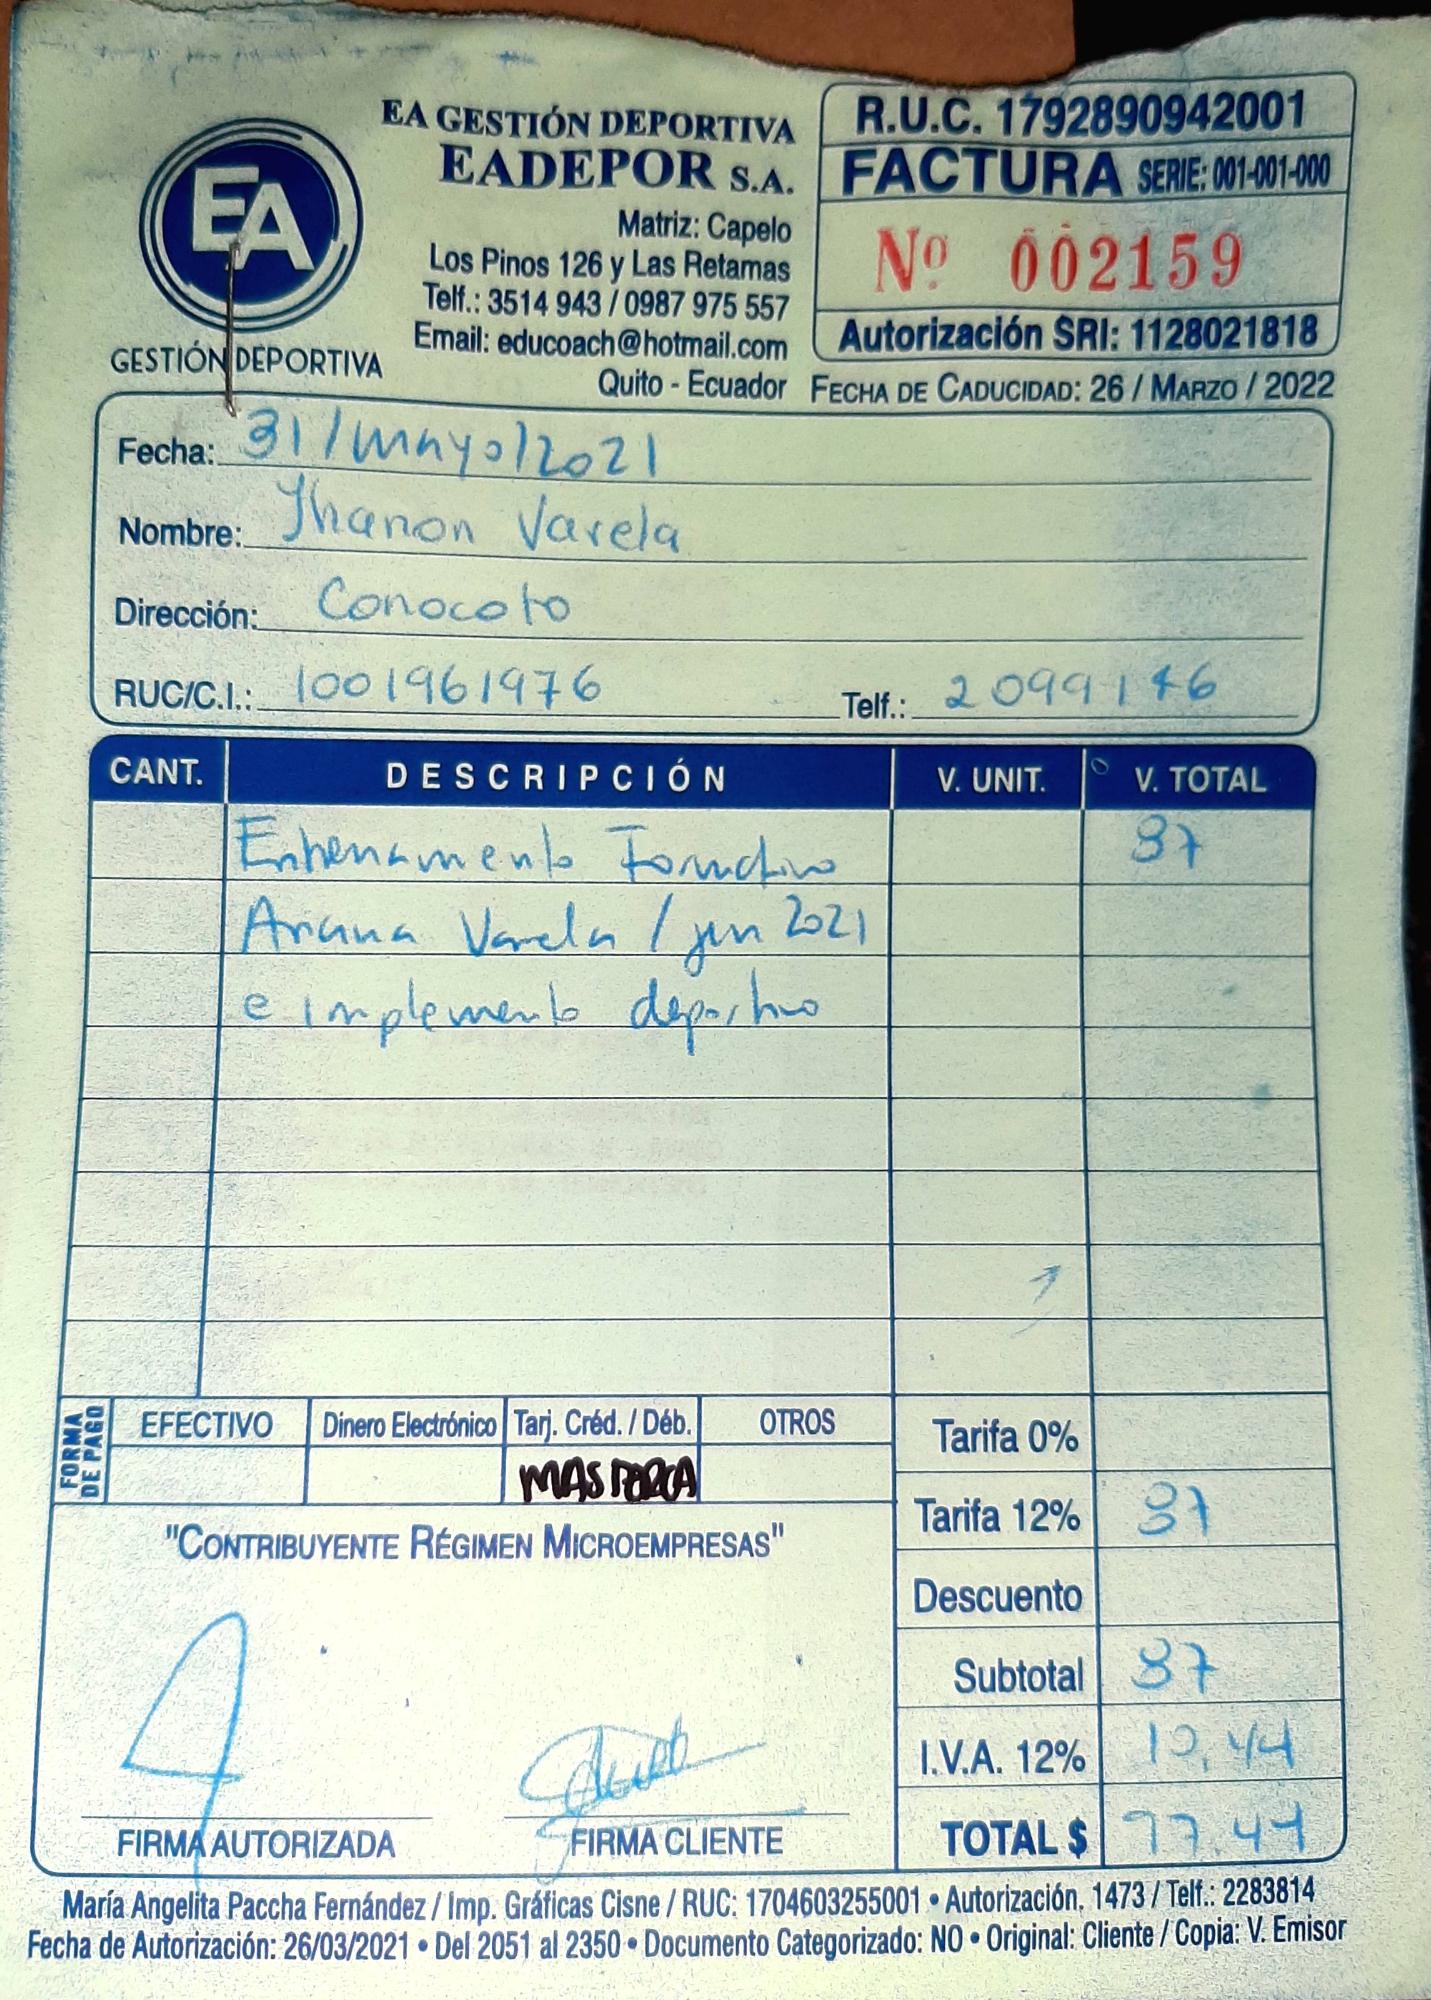 EA GESTIÓN DEPORTIVA
EADEPOR S.A.
Matriz: Capelo
Los Pinos 126 y Las Retamas
Telf.: 3514 943 / 0987 975 557
Email: educoach@hotmail.com
Quito - Ecuador
EA
GESTIÓN DEPORTIVA
R.U.C. 1792890942001
FACTURA SERIE: 001-001-000
Nº 002159
Autorización SRI: 1128021818
FECHA DE CADUCIDAD: 26 / MARZO / 2022
Fecha: 31/mayo/2021
Nombre: Jhanon Varela
Dirección: Conocoto
RUC/C.I.: 1001961976 Telf.: 2099146
CANT. DESCRIPCIÓN V. UNIT. V. TOTAL
Entrenamiento Formativo 87
Ariana Varela / jun 2021
e implemento deportivo
FORMA DE PAGO
EFECTIVO Dinero Electrónico Tarj. Créd. / Déb. OTROS
Tarifa 0%
Tarifa 12% 87
Descuento
Subtotal 87
I.V.A. 12% 10,44
TOTAL $ 97.44
"CONTRIBUYENTE RÉGIMEN MICROEMPRESAS"
FIRMA AUTORIZADA FIRMA CLIENTE
María Angelita Paccha Fernández / Imp. Gráficas Cisne / RUC: 1704603255001 • Autorización. 1473 / Telf.: 2283814
Fecha de Autorización: 26/03/2021 • Del 2051 al 2350 • Documento Categorizado: NO • Original: Cliente / Copia: V. Emisor